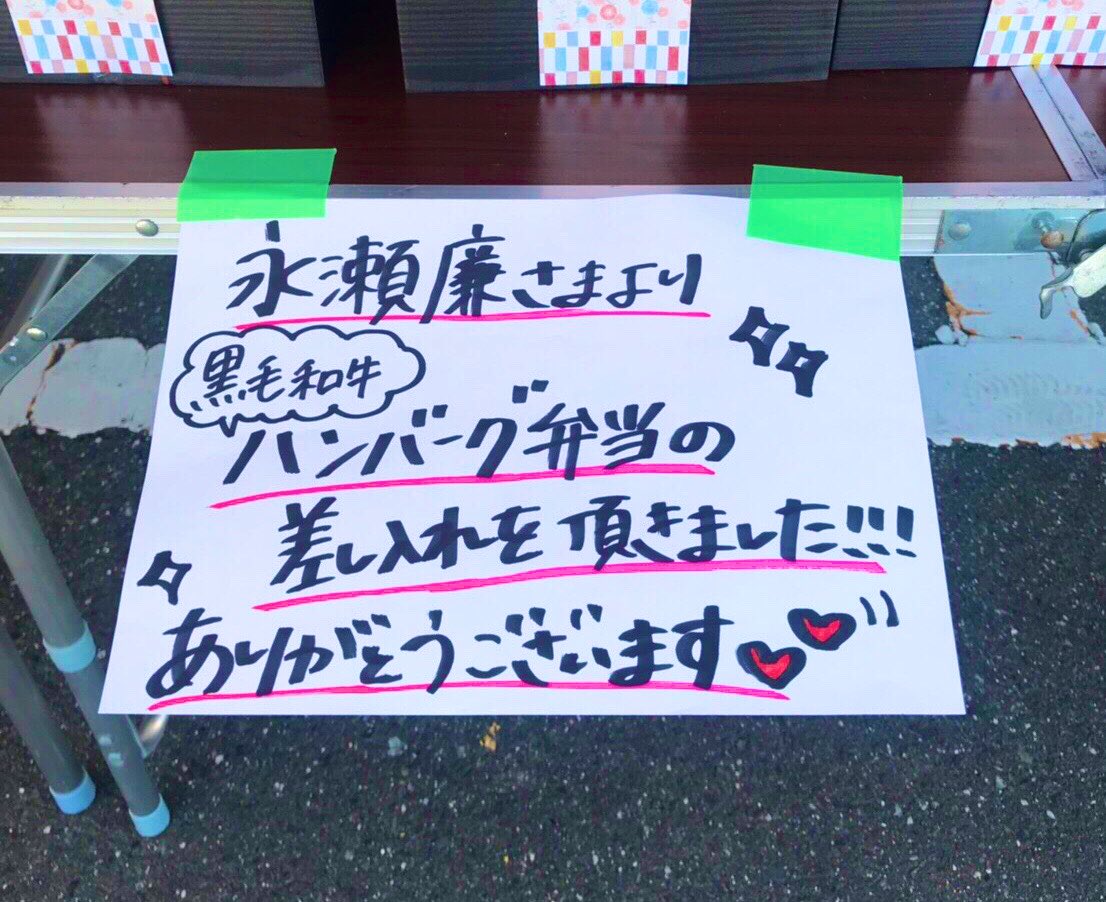 永瀬廉さまより
黒毛和牛
ハンバーグ弁当の
差し入れを頂きました!!!
ありがとうございます